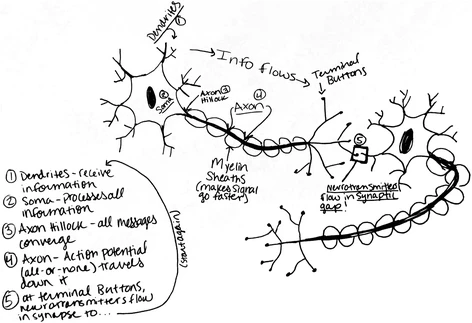 Dendrites
①
→ Info flows →
Terminal
Buttons
② Soma
Axon ③
Hillock
④
Axon
⑤
Myelin
Sheaths
(makes signal
go faster)
Neurotransmitted
flow in synaptic
gap!
① Dendrites - receive
information
② Soma - Processes all
information
③ Axon Hillock - all messages
converge
④ Axon - Action potential
(all-or-none) travels
down it
⑤ at terminal Buttons,
neurotransmitters flow
in synapse to...
(start again)